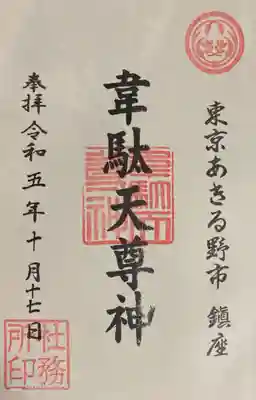 東京あきる野市 鎮座
韋駄天尊神
奉拝 令和五年十月十七日
社務所印